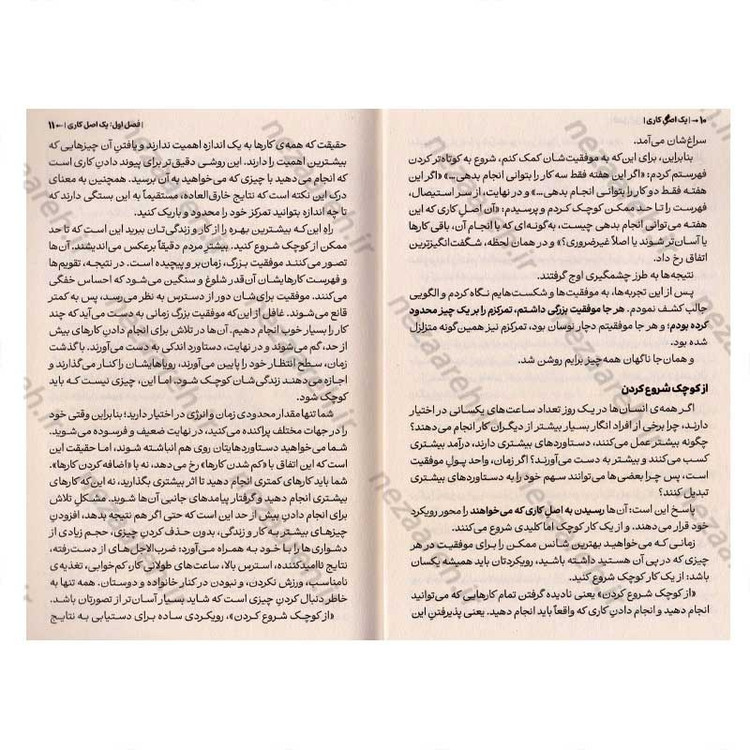 ۱۰ ← | یک اصل کاری |
سراغ‌شان می‌آمد.
بنابراین، برای این‌که به موفقیت‌شان کمک کنم، شروع به کوتاه‌تر کردن
فهرستم کردم: «اگر این هفته فقط سه کار را بتوانی انجام بدهی...» «اگر این
هفته فقط دو کار را بتوانی انجام بدهی...» و در نهایت، از سر استیصال،
فهرست را تا حد ممکن کوچک کردم و پرسیدم: «آن اصل کاری که این
هفته می‌توانی انجام بدهی چیست، به‌گونه‌ای که با انجام آن، باقی کارها
یا آسان‌تر شوند یا اصلاً غیرضروری؟» و در همان لحظه، شگفت‌انگیزترین
اتفاق رخ داد.
نتیجه‌ها به طرز چشمگیری اوج گرفتند.
پس از این تجربه‌ها، به موفقیت‌ها و شکست‌هایم نگاه کردم و الگویی
جالب کشف نمودم. هر جا موفقیت بزرگی داشتم، تمرکزم را بر یک چیز محدود
کرده بودم؛ و هر جا موفقیتم دچار نوسان بود، تمرکزم نیز همین‌گونه متزلزل
شده بود.
و همان‌جا ناگهان همه‌چیز برایم روشن شد.
از کوچک شروع کردن
اگر همه‌ی انسان‌ها در یک روز تعداد ساعت‌های یکسانی در اختیار
دارند، چرا برخی از افراد انگار بسیار بیشتر از دیگران کار انجام می‌دهند؟
چگونه بیشتر عمل می‌کنند، دستاوردهای بیشتری دارند، درآمد بیشتری
کسب می‌کنند و بیشتر به دست می‌آورند؟ اگر زمان، واحد پولِ موفقیت
است، پس چرا بعضی‌ها می‌توانند سهم خود را به دستاوردهای بیشتری
تبدیل کنند؟
پاسخ این است: آن‌ها رسیدن به اصلِ کاری که می‌خواهند را محور رویکرد
خود قرار می‌دهند. و از یک کار کوچک اما کلیدی شروع می‌کنند.
زمانی که می‌خواهید بهترین شانس ممکن را برای موفقیت در هر
چیزی که در پی آن هستید داشته باشید، رویکردتان باید همیشه یکسان
باشد: از یک کار کوچک شروع کنید.
«از کوچک شروع کردن» یعنی نادیده گرفتن تمام کارهایی که می‌توانید
انجام دهید و انجام دادنِ کاری که واقعاً باید انجام دهید. یعنی پذیرفتنِ این
| فصل اول: یک اصل کاری | ← ۱۱
حقیقت که همه‌ی کارها به یک اندازه اهمیت ندارند و یافتنِ آن چیزهایی که
بیشترین اهمیت را دارند. این روشی دقیق‌تر برای پیوند دادنِ کاری است
که انجام می‌دهید با چیزی که می‌خواهید به آن برسید. همچنین به معنای
درک این نکته است که نتایج خارق‌العاده، مستقیماً به این بستگی دارند که
تا چه اندازه بتوانید تمرکز خود را محدود و باریک کنید.
راهِ این‌که بیشترین بهره را از کار و زندگی‌تان ببرید این است که تا حد
ممکن از کوچک شروع کنید. بیشترِ مردم دقیقاً برعکس می‌اندیشند. آن‌ها
تصور می‌کنند موفقیت بزرگ، زمان‌بر و پیچیده است. در نتیجه، تقویم‌ها
و فهرست کارهایشان آن‌قدر شلوغ و سنگین می‌شود که احساس خفگی
می‌کنند. موفقیت برای‌شان دور از دسترس به نظر می‌رسد، پس به کمتر
قانع می‌شوند. غافل از این‌که موفقیت بزرگ زمانی به دست می‌آید که چند
کار را بسیار خوب انجام دهیم. آن‌ها در تلاش برای انجام دادنِ کارهای بیش
از حد، گم می‌شوند و در نهایت، دستاورد اندکی به دست می‌آورند. با گذشت
زمان، سطح انتظار خود را پایین می‌آورند، رویاهایشان را کنار می‌گذارند و
اجازه می‌دهند زندگی‌شان کوچک شود. اما این، چیزی نیست که باید
کوچک شود.
شما تنها مقدار محدودی زمان و انرژی در اختیار دارید؛ بنابراین وقتی خود
را در جهات مختلف پراکنده می‌کنید، در نهایت ضعیف و فرسوده می‌شوید.
شما می‌خواهید دستاوردهایتان روی هم انباشته شوند، اما حقیقت این
است که این اتفاق با «کم شدنِ کارها» رخ می‌دهد، نه با «اضافه کردنِ کارها».
شما باید کارهای کمتری انجام دهید تا اثر بیشتری بگذارید، نه این‌که کارهای
بیشتری انجام دهید و گرفتار پیامدهای جانبی آن‌ها شوید. مشکلِ تلاش
برای انجام دادنِ بیش از حد این است که حتی اگر هم نتیجه بدهد، افزودنِ
چیزهای بیشتر به کار و زندگی، بدون حذف کردنِ چیزی، حجم زیادی از
دشواری‌ها را با خود به همراه می‌آورد: ضرب‌الاجل‌های از دست‌رفته،
نتایج ناامیدکننده، استرس بالا، ساعت‌های طولانی کار، کم‌خوابی، تغذیه‌ی
نامناسب، ورزش نکردن، و نبودن در کنار خانواده و دوستان. همه تنها به
خاطر دنبال کردنِ چیزی است که شاید بسیار آسان‌تر از تصورتان باشد.
«از کوچک شروع کردن»، رویکردی ساده برای دستیابی به نتایج
nezaareh.ir